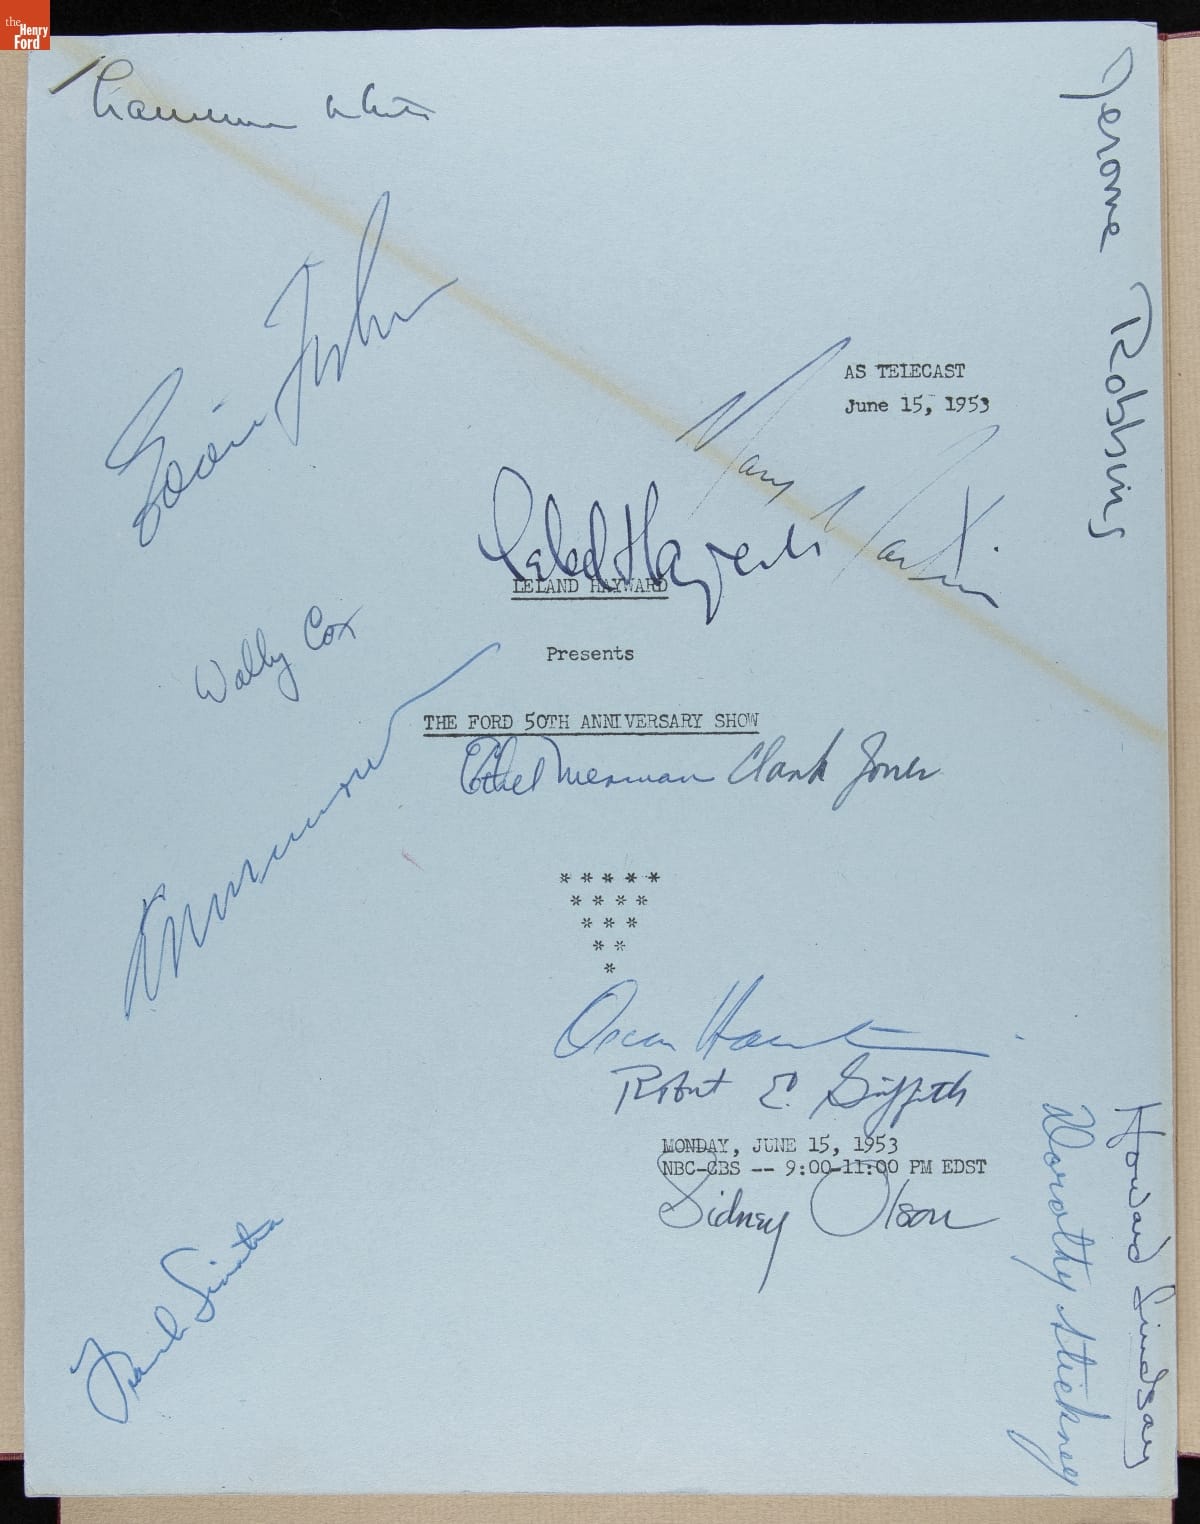 the
Henry
Ford
Lawrence White
Jerome Robbins
Eddie Fisher
AS TELECAST
June 15, 1953
Mary Martin
Leland Hayward
LELAND HAYWARD
Wally Cox
Presents
THE FORD 50TH ANNIVERSARY SHOW
Ethel Merman Clark Jones
* * * * *
* * * *
* * *
* *
*
Oscar Hammerstein
Robert E. Griffith
MONDAY, JUNE 15, 1953
NBC-CBS -- 9:00-11:00 PM EDST
Sidney Olson
Howard Lindsay
Dorothy Stickney
Frank Sinatra